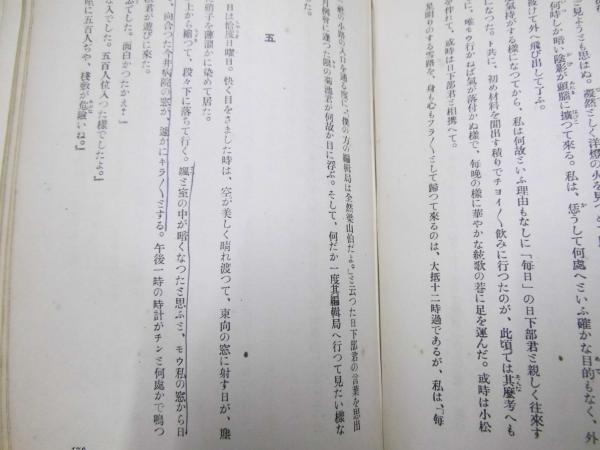 見ようとも思はぬ。凝然として洋燈の火を見つ
何時しか暗い陰影が頭腦に擴つて來る。私は、恁うして何處へといふ確かな目的もなく、外
套を被けて外へ飛び出して了ふ。
氣持がする樣になつてから、私は何故といふ理由もなしに「毎日」の日下部君と親しく往來す
になつた。ト共に、初め材料を聞出す積りでチヨイ〳〵飮みに行つたのが、此頃では其麽考へも
に、唯モウ行かねば氣が落付かぬ樣で、毎晩の樣に華やかな絃歌の巷に足を運んだ。或時は小松
を伴れて、或時は日下部君と相携へて。
星明りのする雪路を、身も心もフラ〳〵として歸つて來るのは、大抵十二時過であるが、私は、「毎
の小路の入口を通る度に、『僕の方の編輯局は全然梁山泊だよ。』と云つた日下部君の言葉を思出
月樹脊に逢つた限の菊池君が何故か目に浮ぶ。そして、何だか一度其編輯局へ行つて見たい樣な
五
日は恰度日曜日。快く目をさました時は、空が美しく晴れ渡つて、東向の窓に射す日が、塵
に硝子を薄温かに染めて居た。
上から縮つて、段々下に落ちて行く。颯と室の中が暗くなつたと思ふと、モウ私の窓から日
、向合つた今井病院の窓が、遽かにキラ〳〵とする。午後一時の時計がチンと何處かで鳴つ
君が遊びに來た。
でした。面白かつたかえ？』
人でした。五百人位入つた樣でしたよ。』
座に五百人ぢや、棧敷が危險いね。』